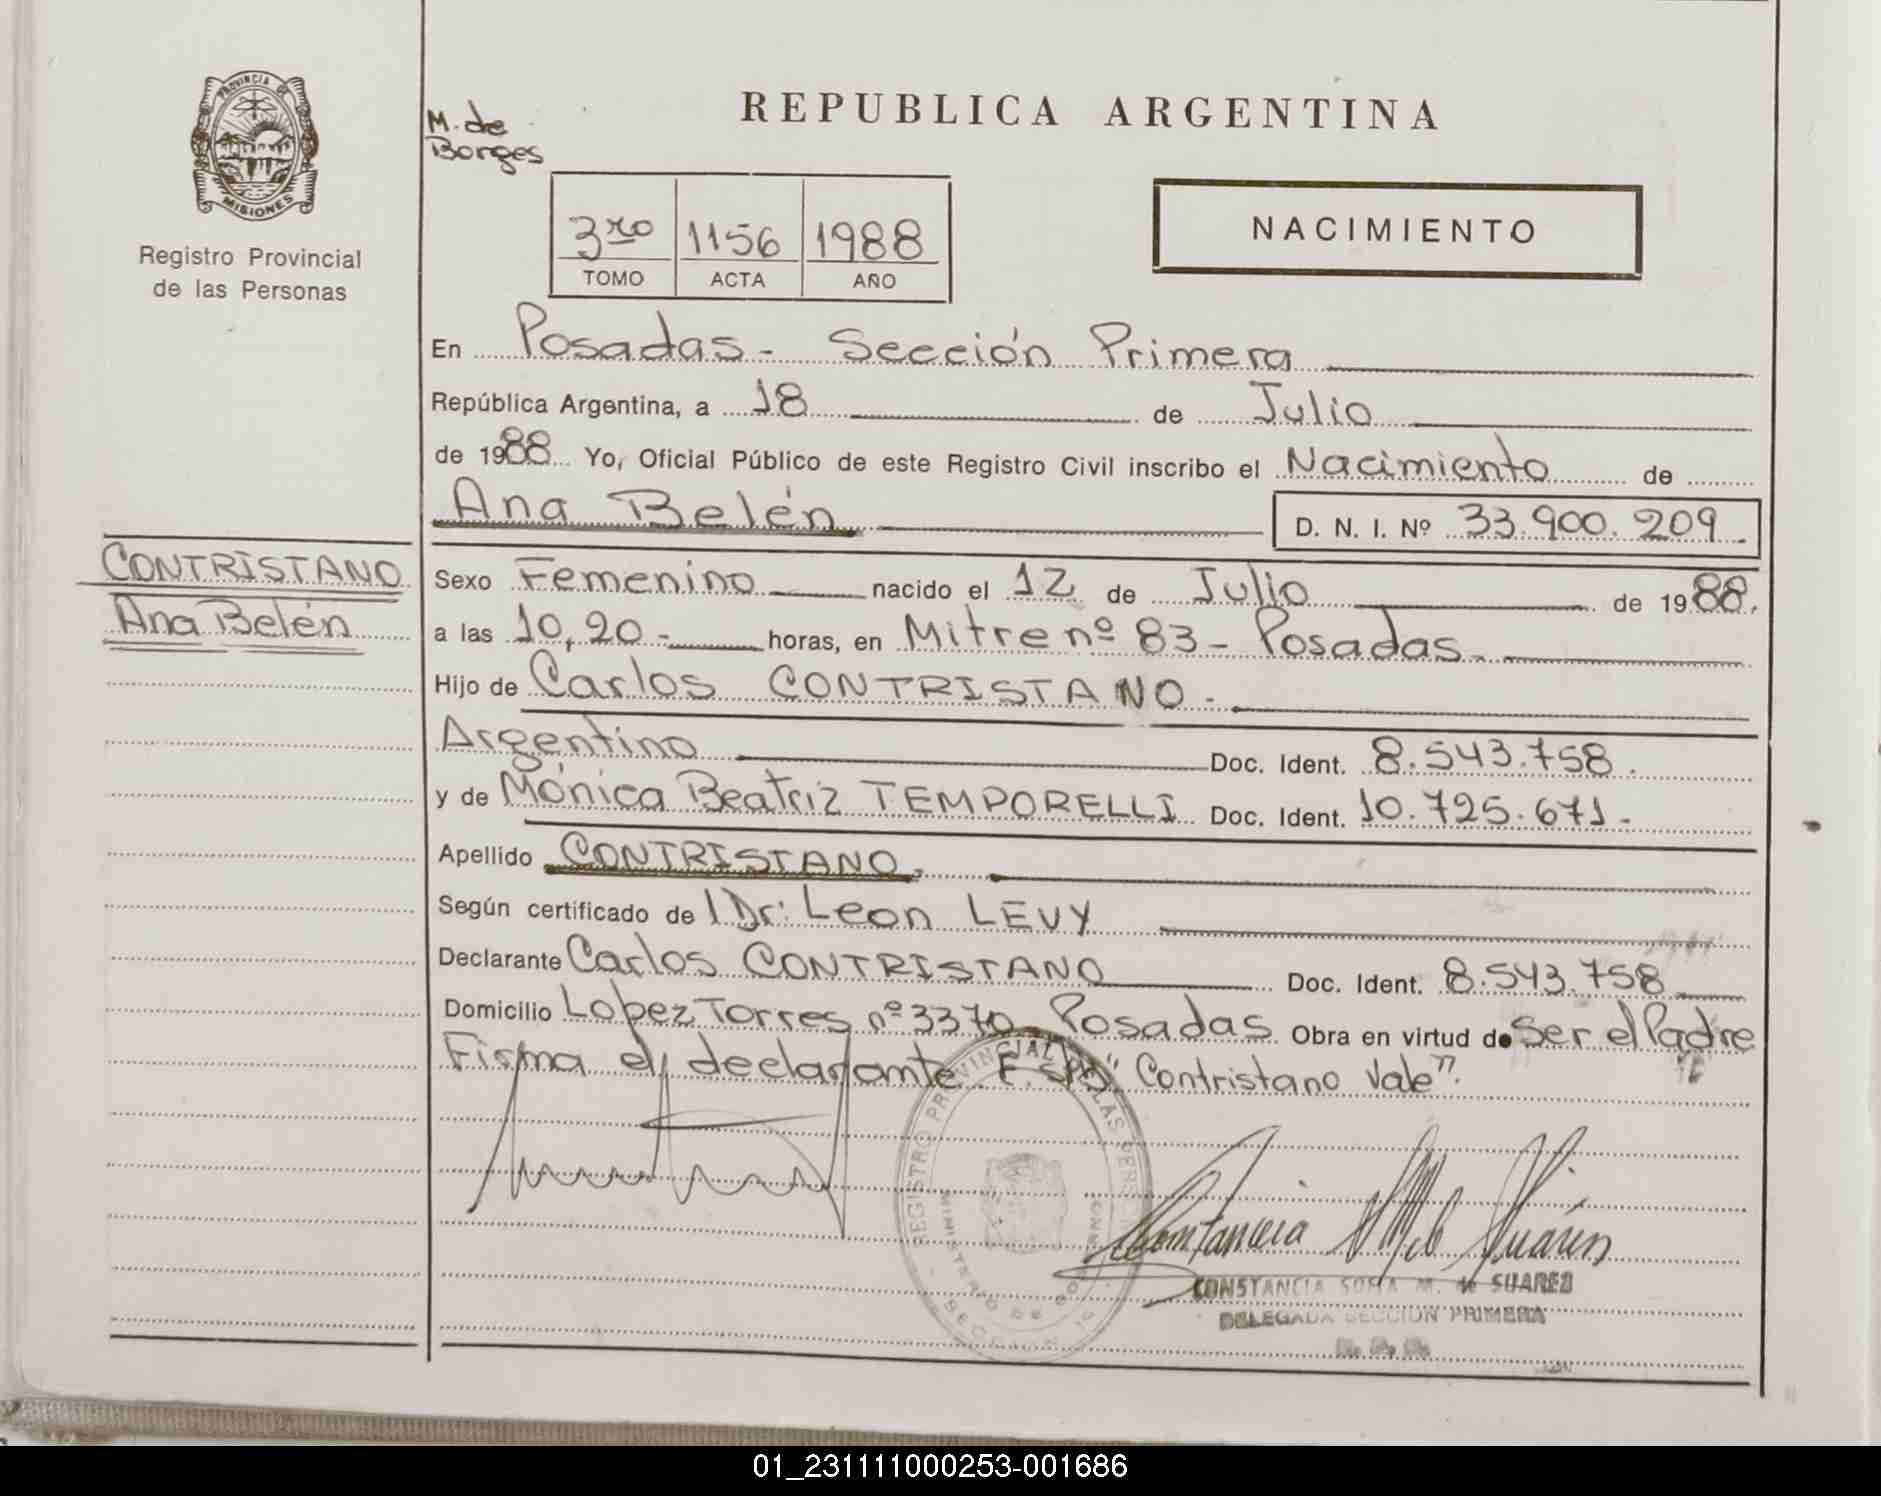 PROVINCIA DE
MISIONES
Registro Provincial
de las Personas
CONTRISTANO
Ana Belén
M. de
Borges
REPUBLICA ARGENTINA
3ro 1156 1988
TOMO ACTA AÑO
NACIMIENTO
En Posadas - Sección Primera
República Argentina, a 18 de Julio
de 1988 Yo, Oficial Público de este Registro Civil inscribo el Nacimiento de
Ana Belén D. N. I. Nº 33.900.209
Sexo Femenino nacido el 12 de Julio de 1988.
a las 10,20 - horas, en Mitre nº 83 - Posadas -
Hijo de Carlos CONTRISTANO -
Argentino Doc. Ident. 8.543.758.
y de Mónica Beatriz TEMPORELLI Doc. Ident. 10.725.671 -
Apellido CONTRISTANO.
Según certificado de l Dr: Leon LEVY
Declarante Carlos CONTRISTANO Doc. Ident. 8.543.758
Domicilio Lopez Torres nº 3370 - Posadas Obra en virtud de Ser el Padre
Firma el declarante "Contristano Vale".
REGISTRO PROVINCIAL DE LAS PERSONAS
MINISTERIO DE GOBIERNO
SECCION 1ª
CONSTANCIA SOFIA M. de SUAREZ
DELEGADA SECCION PRIMERA
01_231111000253-001686